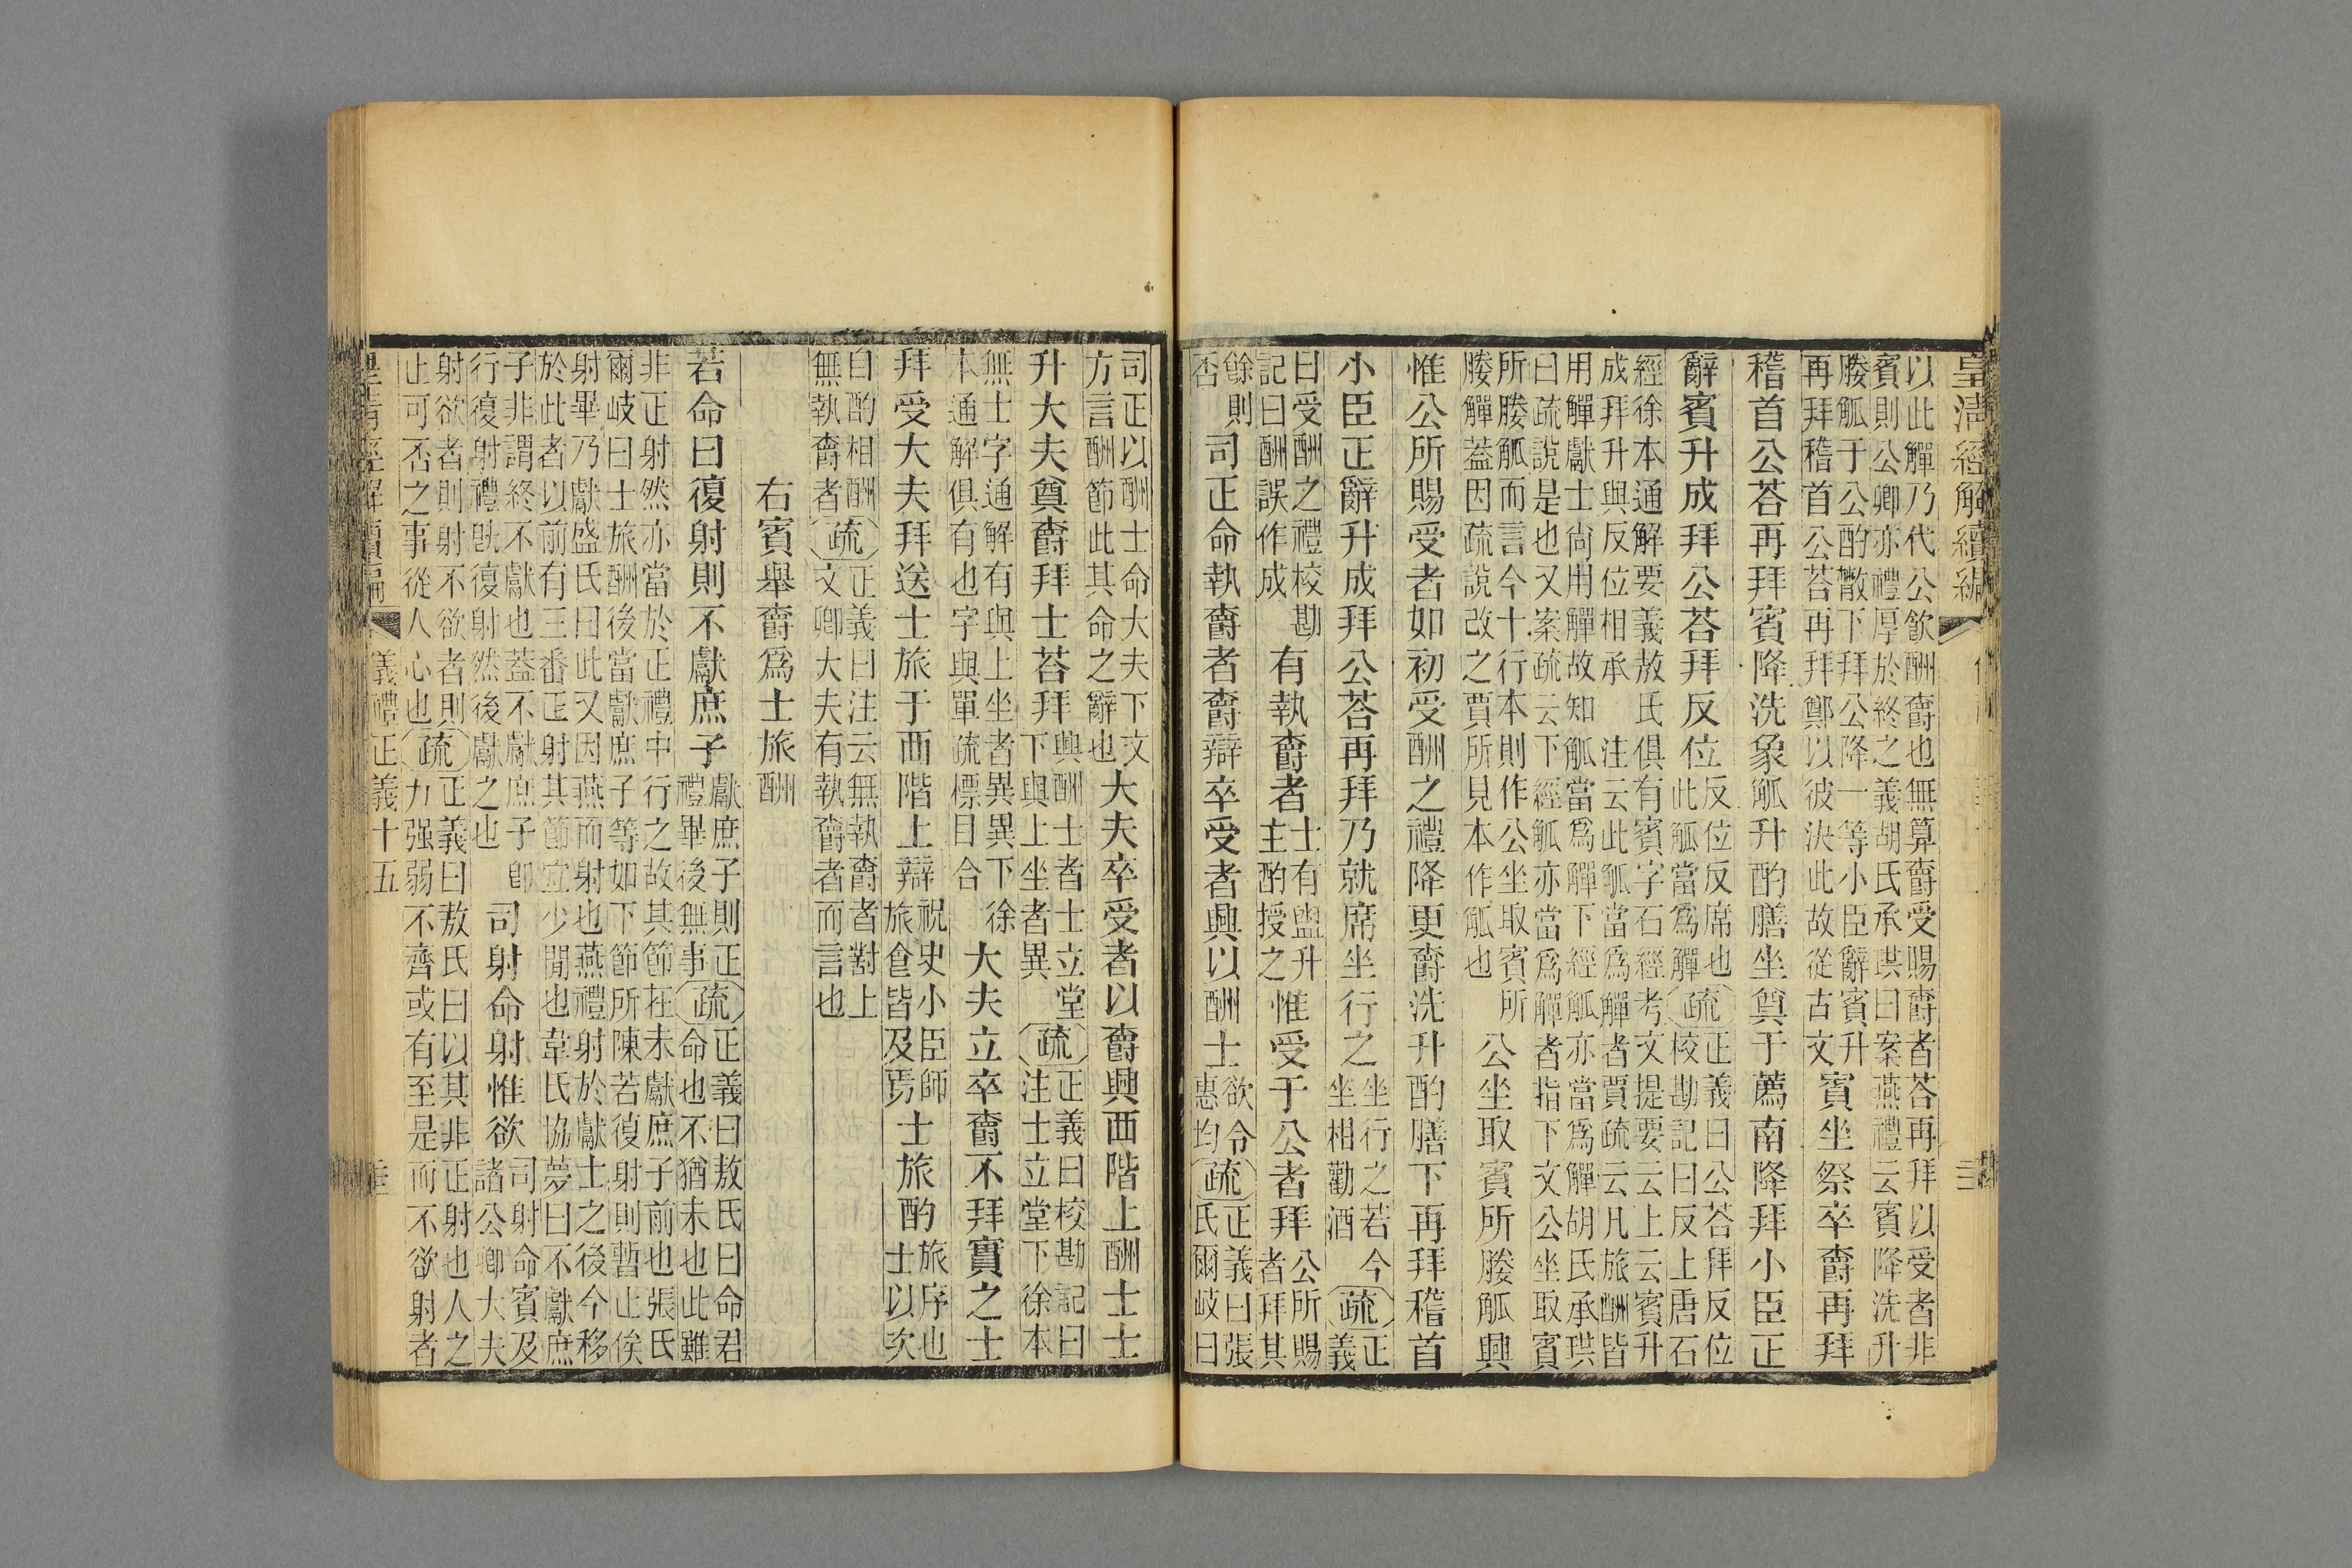 皇清經解續編
以此觶乃代公飲酬爵也無算爵受賜爵者荅再拜以受者非
賓則公卿亦禮厚於終之義胡氏承珙曰案燕禮云賓降洗升
媵觚于公酌散下拜公降一等小臣辭賓升
再拜稽首公荅再拜鄭以彼決此故從古文
賓坐祭卒爵再拜
稽首公荅再拜賓降洗象觚升酌膳坐奠于薦南降拜小臣正
辭賓升成拜公荅拜反位
反位反席也
此觚當爲觶
疏
正義曰公荅拜反位
校勘記曰反上唐石
經徐本通解要義敖氏俱有賓字石經考文提要云上云賓升
成拜升與反位相承 注云此觚當爲觶者賈疏云凡旅酬皆
用觶獻士尚用觶故知觚當爲觶下經觚亦當爲觶胡氏承珙
曰疏說是也又案疏云下經觚亦當爲觶者指下文公坐取賓
所媵觚而言今十行本則作公坐取賓所
媵觶蓋因疏說改之賈所見本作觚也
公坐取賓所媵觚興
惟公所賜受者如初受酬之禮降更爵洗升酌膳下再拜稽首
小臣正辭升成拜公荅再拜乃就席坐行之
坐行之若今
坐相勸酒
疏
正
義
曰受酬之禮校勘
記曰酬誤作成
有執爵者
士有盥升
主酌授之
惟受于公者拜
公所賜
者拜其
餘則
否
司正命執爵者爵辯卒受者興以酬士
欲令
惠均
疏
正義曰張
氏爾岐曰
司正以酬士命大夫下文
方言酬節此其命之辭也
大夫卒受者以爵興西階上酬士士
升大夫奠爵拜士荅拜
興酬士者士立堂
下與上坐者異
疏
正義曰校勘記曰
注士立堂下徐本
無士字通解有與上坐者異異下徐
本通解俱有也字與單疏標目合
大夫立卒爵不拜實之士
拜受大夫拜送士旅于西階上辯
祝史小臣師
旅食皆及焉
士旅酌
旅序也
士以次
自酌相酬
無執爵者
疏
正義曰注云無執爵者對上
文卿大夫有執爵者而言也
右賓舉爵爲士旅酬
若命曰復射則不獻庶子
獻庶子則正
禮畢後無事
疏
正義曰敖氏曰命君
命也不猶未也此雖
非正射然亦當於正禮中行之故其節在未獻庶子前也張氏
爾岐曰士旅酬後當獻庶子等如下節所陳若復射則暫止俟
射畢乃獻盛氏曰此又因燕而射也燕禮射於獻士之後今移
於此者以前有三番正射其節宜少閒也韋氏協夢曰不獻庶
子非謂終不獻也蓋不獻庶子卽
行復射禮旣復射然後獻之也
司射命射惟欲
司射命賓及
諸公卿大夫
射欲者則射不欲者則
止可否之事從人心也
疏
正義曰敖氏曰以其非正射也人之
力强弱不齊或有至是而不欲射者
皇清經解續編 儀禮正義十五